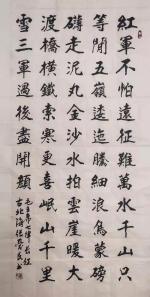 紅軍不怕遠征難萬水千山只
等閒五嶺逶迤騰細浪烏蒙磅
礴走泥丸金沙水拍雲崖暖大
渡橋橫鐵索寒更喜岷山千里
雪三軍過後盡開顏
毛主席七律長征
古北海張